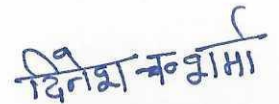 दिनेश चन्द्र शर्मा